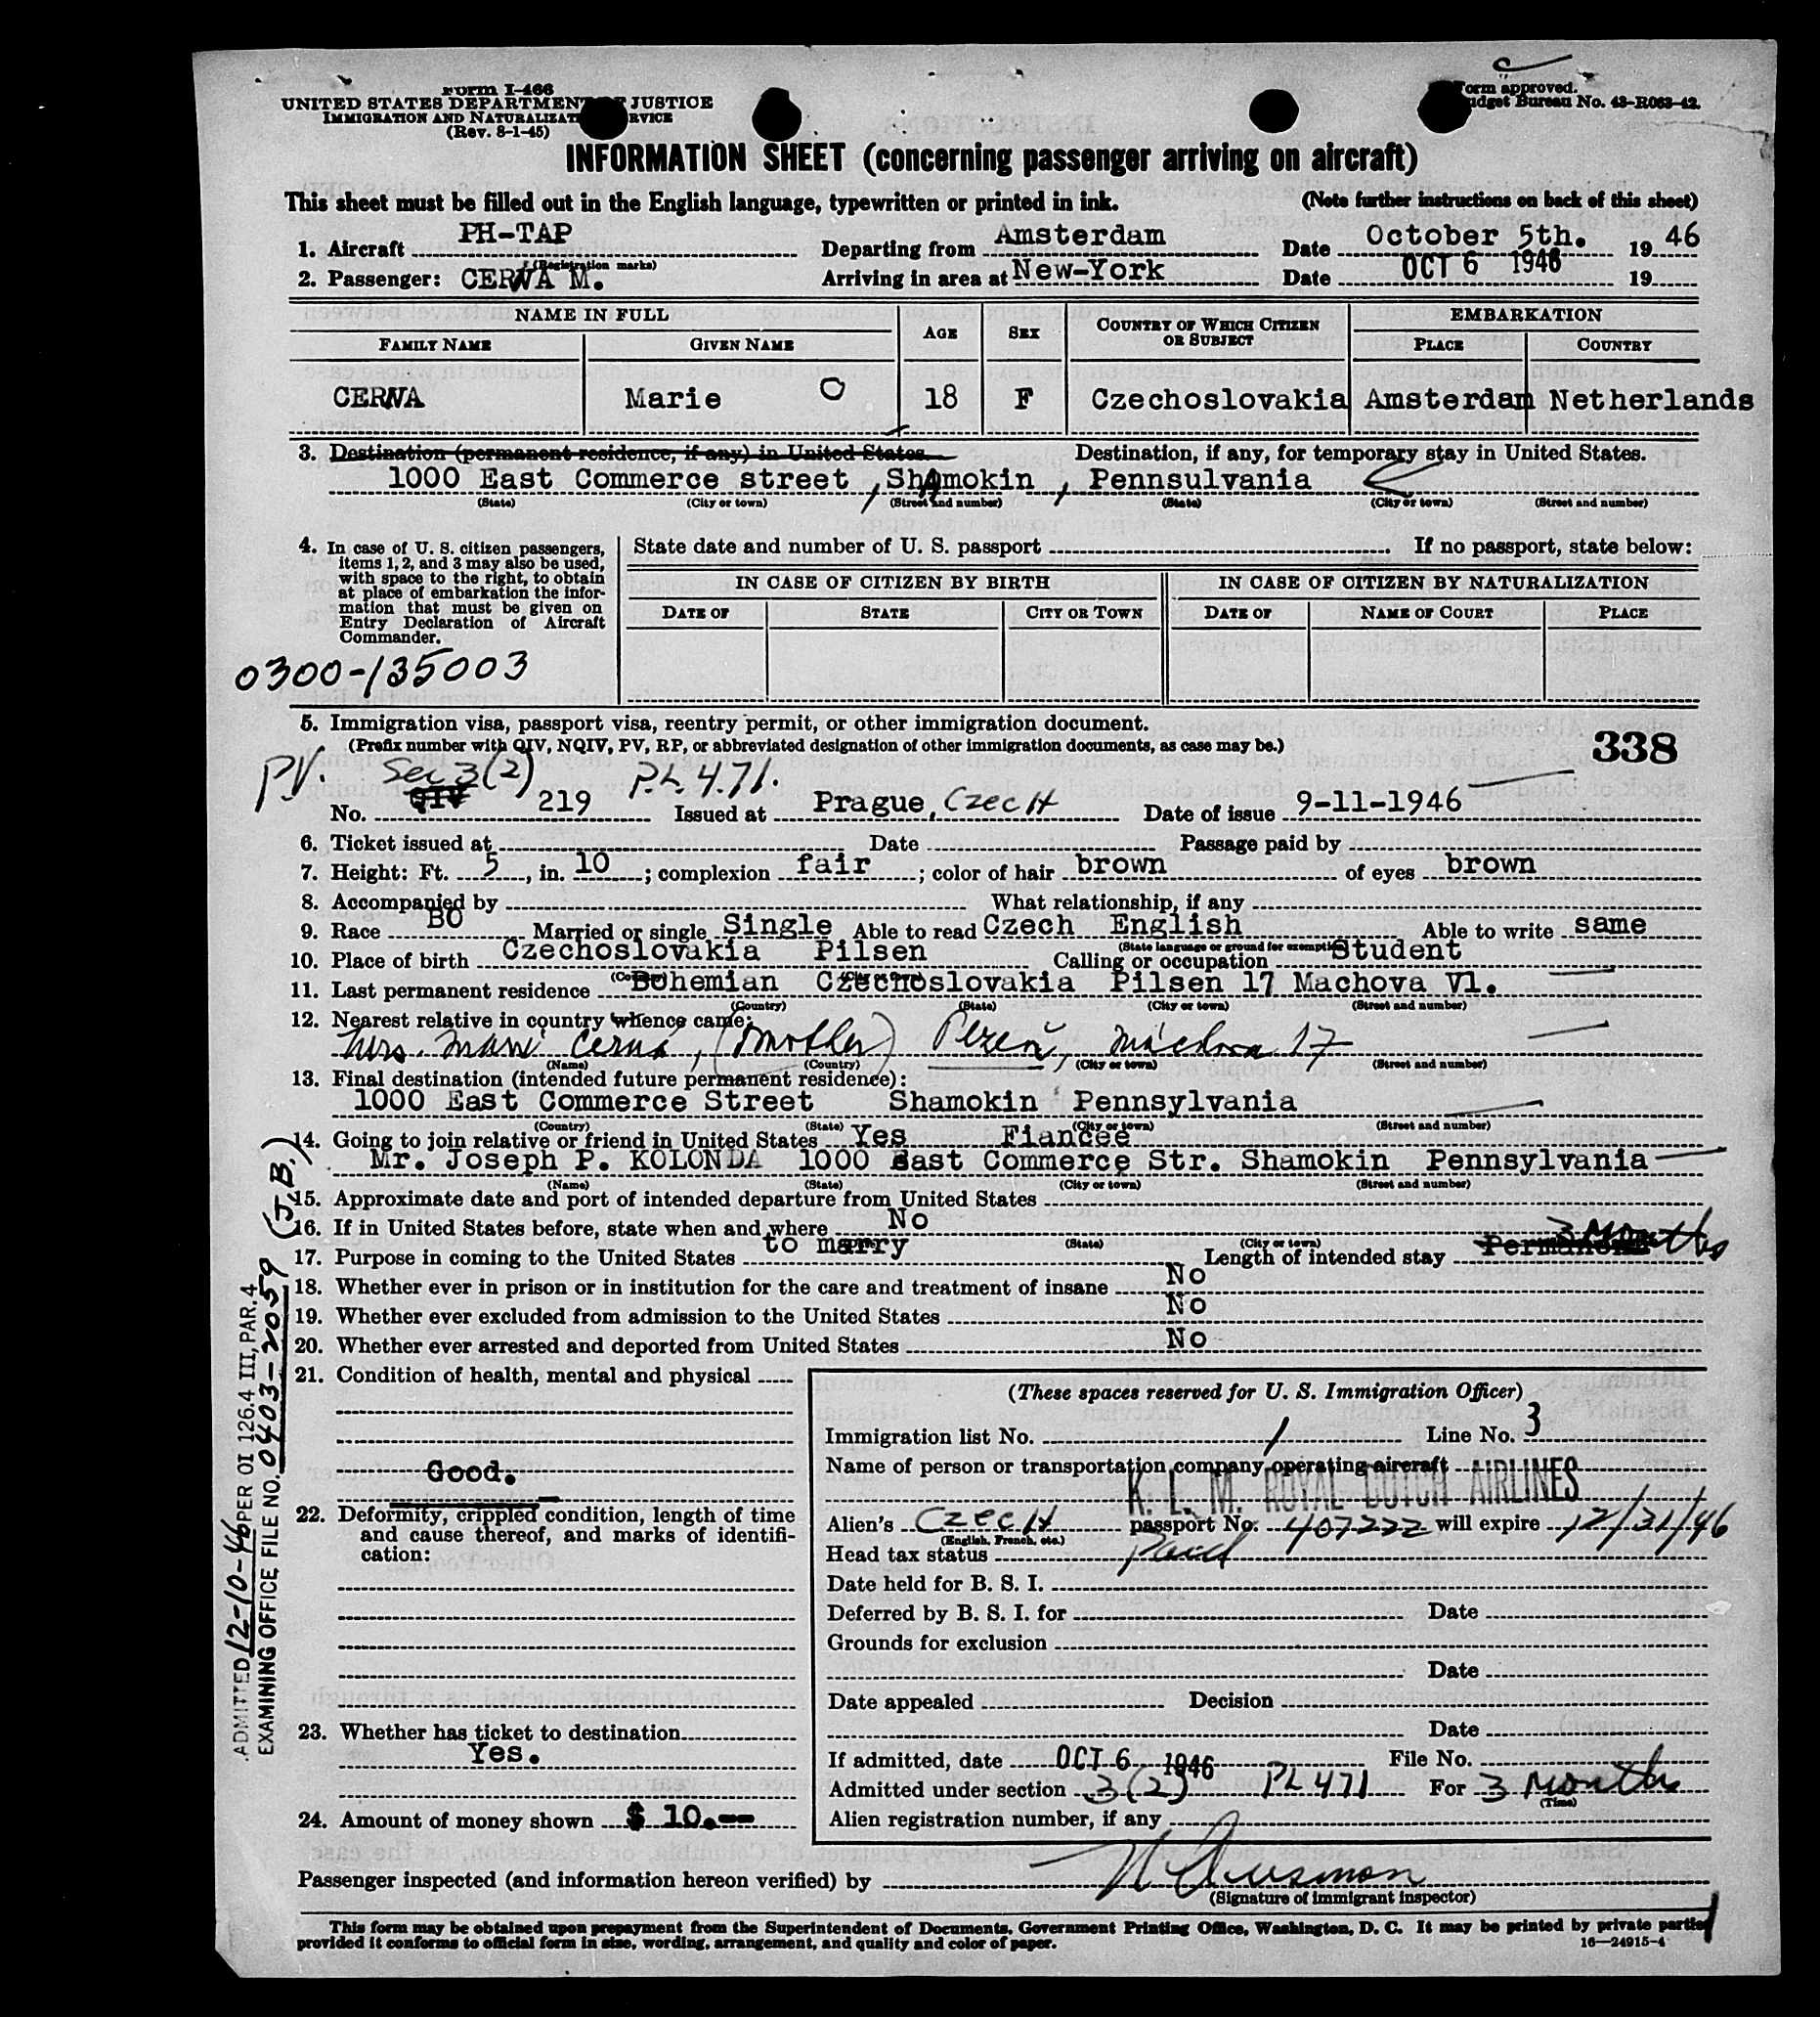 Form I-466
UNITED STATES DEPARTMENT OF JUSTICE
IMMIGRATION AND NATURALIZATION SERVICE
(Rev. 8-1-45)
Form approved.
Budget Bureau No. 43-R063-42.
INFORMATION SHEET (concerning passenger arriving on aircraft)
This sheet must be filled out in the English language, typewritten or printed in ink. (Note further instructions on back of this sheet)
1. Aircraft PH-TAP Departing from Amsterdam Date October 5th. 19 46
(Registration marks)
2. Passenger: CERNA M. Arriving in area at New-York Date OCT 6 1946 19
NAME IN FULL AGE SEX COUNTRY OF WHICH CITIZEN OR SUBJECT EMBARKATION
FAMILY NAME GIVEN NAME PLACE COUNTRY
CERNA Marie 18 F Czechoslovakia Amsterdam Netherlands
3. Destination (permanent residence, if any) in United States. Destination, if any, for temporary stay in United States.
1000 East Commerce street, Shamokin, Pennsulvania
(State) (City or town) (Street and number) (State) (City or town) (Street and number)
4. In case of U. S. citizen passengers, items 1, 2, and 3 may also be used, with space to the right, to obtain at place of embarkation the information that must be given on Entry Declaration of Aircraft Commander.
State date and number of U. S. passport If no passport, state below:
IN CASE OF CITIZEN BY BIRTH IN CASE OF CITIZEN BY NATURALIZATION
DATE OF STATE CITY OR TOWN DATE OF NAME OF COURT PLACE
0300-135003
5. Immigration visa, passport visa, reentry permit, or other immigration document.
(Prefix number with QIV, NQIV, PV, RP, or abbreviated designation of other immigration documents, as case may be.)
338
PV. Sec 3(2) P.L. 471.
No. QIV 219 Issued at Prague, Czech Date of issue 9-11-1946
6. Ticket issued at Date Passage paid by
7. Height: Ft. 5, in. 10; complexion fair; color of hair brown of eyes brown
8. Accompanied by What relationship, if any
9. Race BO Married or single Single Able to read Czech English Able to write same
(State language or ground for exemption)
10. Place of birth Czechoslovakia Pilsen Calling or occupation Student
(Country) (City or town)
11. Last permanent residence Bohemian Czechoslovakia Pilsen 17 Machova Vl.
(Country) (State) (City or town) (Street and number)
12. Nearest relative in country whence came:
Mrs. Marie Cerná, (mother) Plzeň, Máchova 17
(Name) (Country) (City or town) (Street and number)
13. Final destination (intended future permanent residence):
1000 East Commerce Street Shamokin Pennsylvania
(Country) (State) (City or town) (Street and number)
14. Going to join relative or friend in United States Yes Fiancée
Mr. Joseph P. KOLONDA 1000 East Commerce Str. Shamokin Pennsylvania
(Name) (State) (City or town) (Street and number)
15. Approximate date and port of intended departure from United States
16. If in United States before, state when and where No
(State) (City or town)
17. Purpose in coming to the United States to marry Length of intended stay Permanent 3 Months
18. Whether ever in prison or in institution for the care and treatment of insane No
19. Whether ever excluded from admission to the United States No
20. Whether ever arrested and deported from United States No
21. Condition of health, mental and physical
Good.
22. Deformity, crippled condition, length of time and cause thereof, and marks of identification:
23. Whether has ticket to destination
Yes.
24. Amount of money shown $ 10.--
(These spaces reserved for U. S. Immigration Officer)
Immigration list No. 1 Line No. 3
Name of person or transportation company operating aircraft
K. L. M. ROYAL DUTCH AIRLINES
Alien's Czech passport No. 407222 will expire 12/31/46
(English, French, etc.)
Head tax status Paid
Date held for B. S. I.
Deferred by B. S. I. for Date
Grounds for exclusion
Date
Date appealed Decision
Date
If admitted, date OCT 6 1946 File No.
Admitted under section 3(2) PL 471 For 3 Months
(Time)
Alien registration number, if any
Passenger inspected (and information hereon verified) by
(Signature of immigrant inspector)
This form may be obtained upon prepayment from the Superintendent of Documents, Government Printing Office, Washington, D. C. It may be printed by private parties
provided it conforms to official form in size, wording, arrangement, and quality and color of paper.
16—24915-4
ADMITTED 12-10-46 PER OI 126.4 III, PAR. 4
EXAMINING OFFICE, FILE NO. 0403-2059 (J.B.)